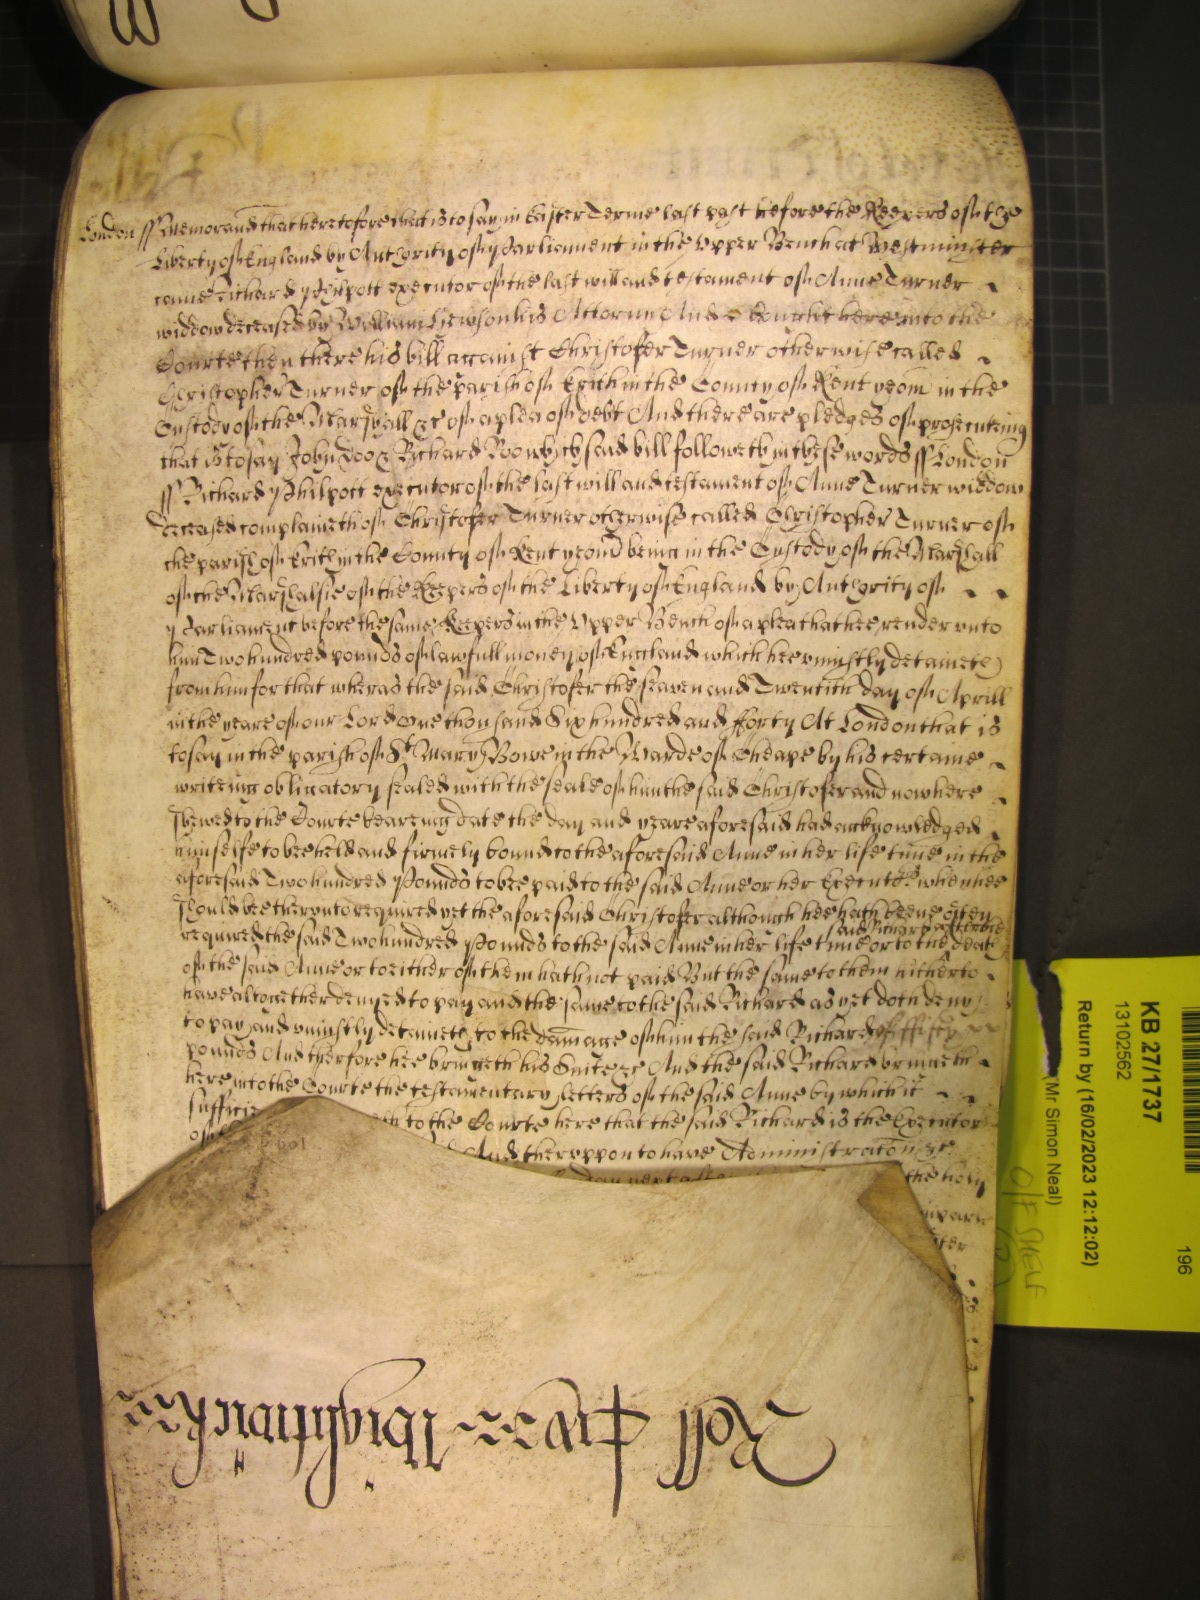 London ss Memorand that heretofore that is to say in Easter Terme last past before the Keepers of the
Liberty of England by Authority of Parliament in the Upper Bench at Westminster
came Richard Philpott executor of the last will and testament of Anne Turner
widdow deceased by William Hewson his Attorny And brought here into the
Courte then there his bill against Christofer Turner otherwise called
Christopher Turner of the parish of Erith in the County of Kent yeom in the
Custody of the Marshall &c of a plea of debt And there are pledges of prosecuting
that is to say John Doo & Richard Roo which said bill followeth in these words ss London
ss Richard Philpott executor of the last will and testament of Anne Turner widdow
deceased complaineth of Christofer Turner otherwise called Christopher Turner of
the parish of Erith in the County of Kent yeom being in the Custody of the Marshall
of the Marshalsie of the Keepers of the Liberty of England by Authority of
Parliament before the same Keepers in the Upper Bench of a plea that hee render unto
him Two hundred pounds of lawfull money of England which hee uniustly detaineth
from him for that wheras the said Christofer the seaven and Twentith day of Aprill
in the yeare of our Lord One thousand Six hundred and fforty At London that is
to say in the parish of St Mary Bowe in the Warde of Cheape by his certaine
writeing obligatory sealed with the seale of him the said Christofer and now here
shewed to the Courte beareing date the day and yeare aforesaid had acknowledged
himselfe to bee held and firmely bound to the aforesaid Anne in her life time in the
aforesaid Two hundred Pounds to bee paid to the said Anne or her Executors when hee
should bee therunto required yet the aforesaid Christofer although hee hath beene often
said Richard after the
required the said Two hundred Pounds to the said Anne in her life time or to the death
of the said Anne or to either of them hath not paid But the same to them hitherto
have altogether denyed to pay and the same to the said Richard as yet doth deny
to pay and uniustly detaineth to the damage of him the said Richard of ffifty
pounds And therfore hee bringeth his Suite &c And the said Richard bringeth
here into the Courte the testamentary letters of the said Anne by which it
sufficie th to the Courte here that the said Richard is the Executor
of And therupon to have Administraton &c
day next after the holy
imparl
Roll
KB 27/1737
13102562
Return by (16/02/2023 12:12:02)
(Mr Simon Neal)
196
O/F SHELF